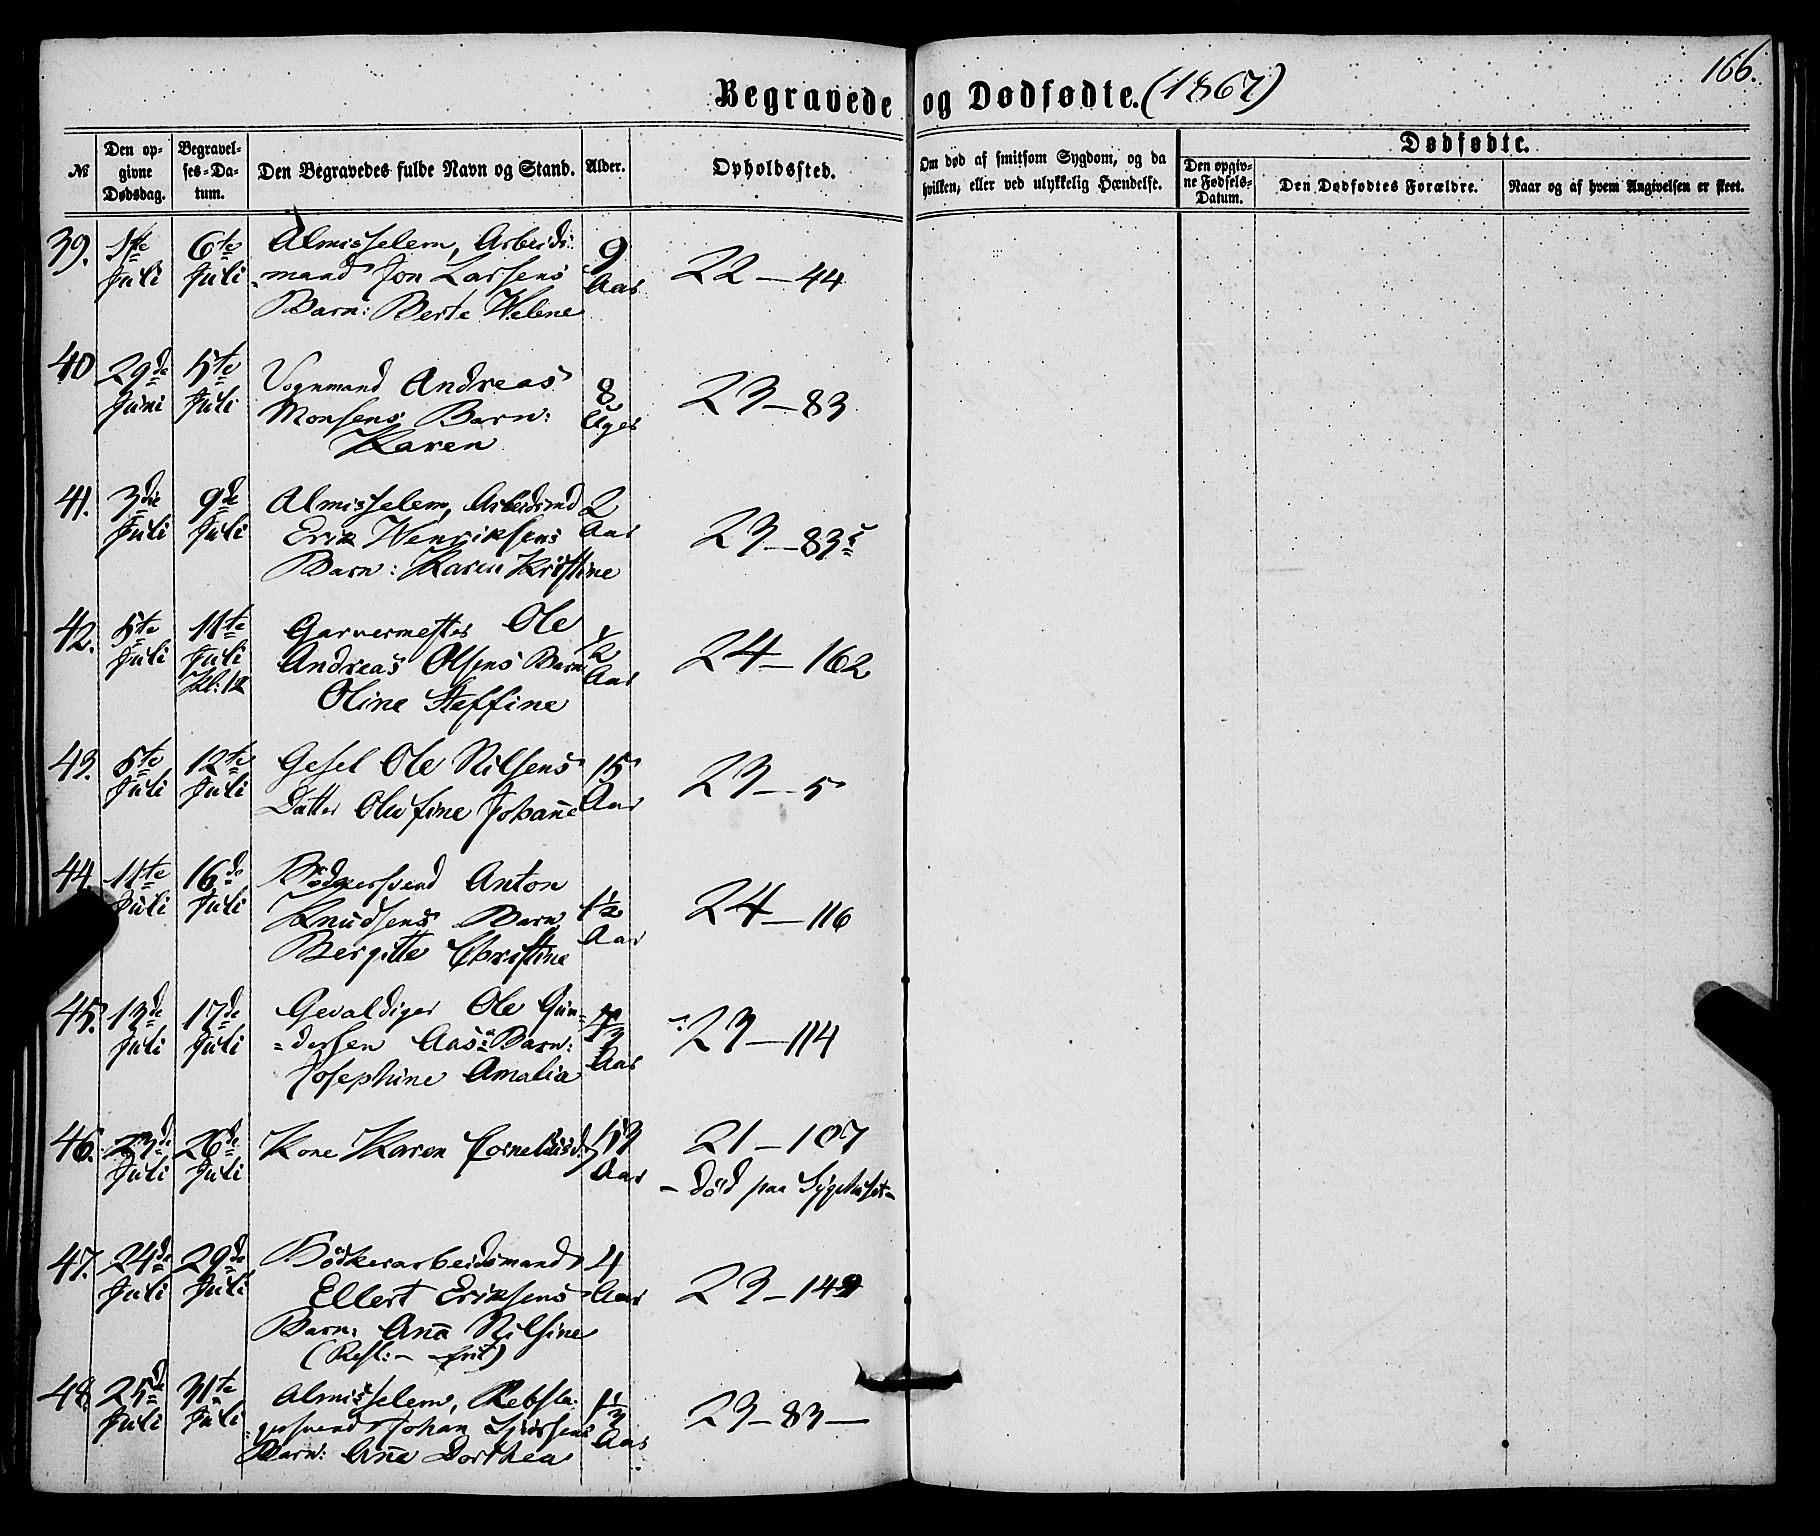 166.
Begravede og Dødfødte. (1867)
№
Den opgivne Dødsdag.
Begravelses-Datum.
Den Begravedes fulde Navn og Stand.
Alder.
Opholdssted.
Om død af smitsom Sygdom, og da hvilken, eller ved ulykkelig Hændelse.
Dødfødte.
Den opgivne Fødsels-Datum.
Den Dødfødtes Forældre.
Naar og af hvem Angivelsen er skeet.
39. 1ste Juli 6te Juli
Almisselem, Arbeids-
mand Jon Larsens
Barn: Berte Helene
9 Aar
22 – 44
40 29de Juni 5te Juli
Vognmand Andreas
Monsens Barn:
Karen
8 Uger
23 – 83
41. 3die Juli 9de Juli
Almisselem, Arbeidsmd
Erik Henriksens
Barn: Karen Kristine
2 Aar
23 – 83
42. 5te Juli 11te Juli Kl: 12
Garvermester Ole
Andreas Olsens Barn
Oline Steffine
1/2 Aar
24 – 162
43. 6te Juli 12te Juli
Gesel Ole Nilsens
Datter Olufine Johanne
15 Aar
23 – 5
44. 11te Juli 16de Juli
Bødkersvend Anton
Knudsens Barn
Bergitte Christine
1 1/2 Aar
24 – 116
45. 13de Juli 17de Juli
Gevaldiger Ole Gun-
=dersen Aas's Barn:
Josephine Amalia
Aar
23 – 114
46. 23de Juli 26de Juli
Kone Karen Corneliusd:
53 Aar
21 – 107
– død paa Sygehuset –
47. 24de Juli 29de Juli
Bødkerarbeidsmand
Ellert Eriksens
Barn: Ana Nilsine
(Resl: – frit)
4 Aar
23 – 149
48. 25de Juli 31te Juli
Almisselem, Rebsla-
=gersvend Johan Sjursens
Barn: Ane Dorthea
1 1/3 Aar
23 – 83 –